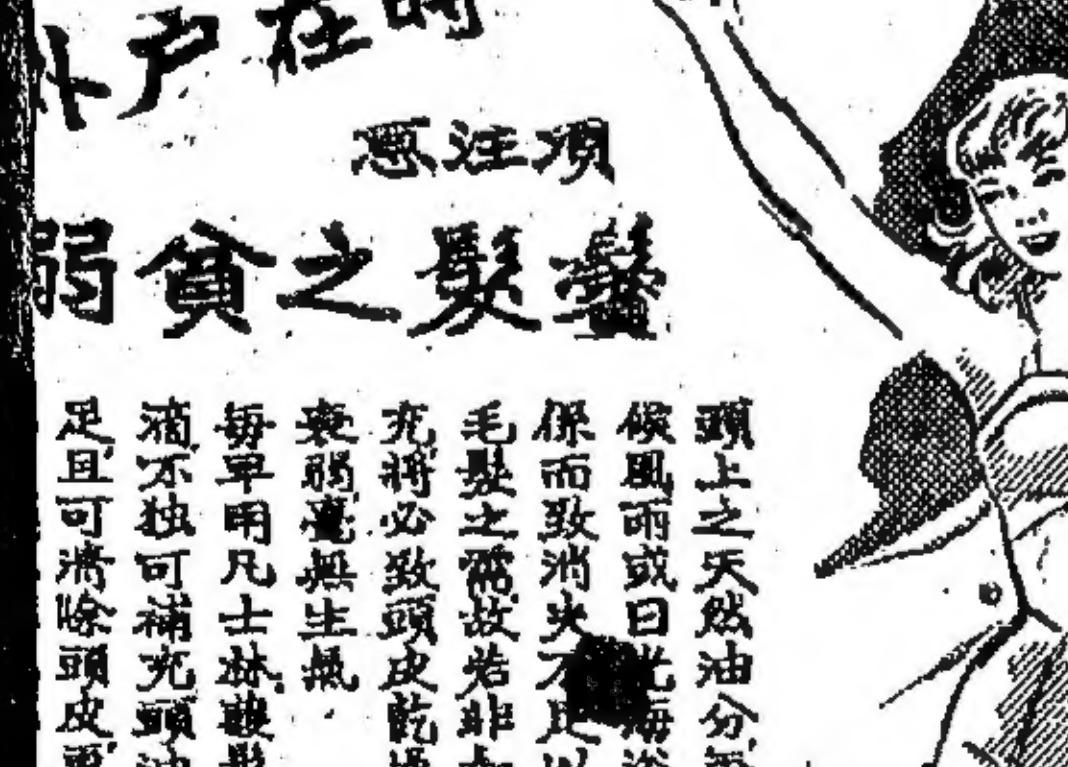 時在戶外
須注意
髮之貧弱
頭上之天然油分
候風雨或日光海
保而致消失不足以
毛髮之需故若非
充將必致頭皮乾
衰弱毫無生氣
每早用凡士林
滴不独可補充頭油
足且可除頭皮